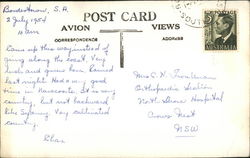 Bordertown, S.A.
2 July 1954
10 am
POST CARD
AVION VIEWS
CORRESPONDENCE ADDRESS
Came up this way instead of
going along the coast. Very
lush and green here. Rained
last night. Had a very good
time in Naracoorte. It is very
country, but not backward
like Sydney. Very cultivated
country.
Chas.
Orthopaedic Section
North Shore Hospital
Crows Nest
NSW
AUSTRALIA